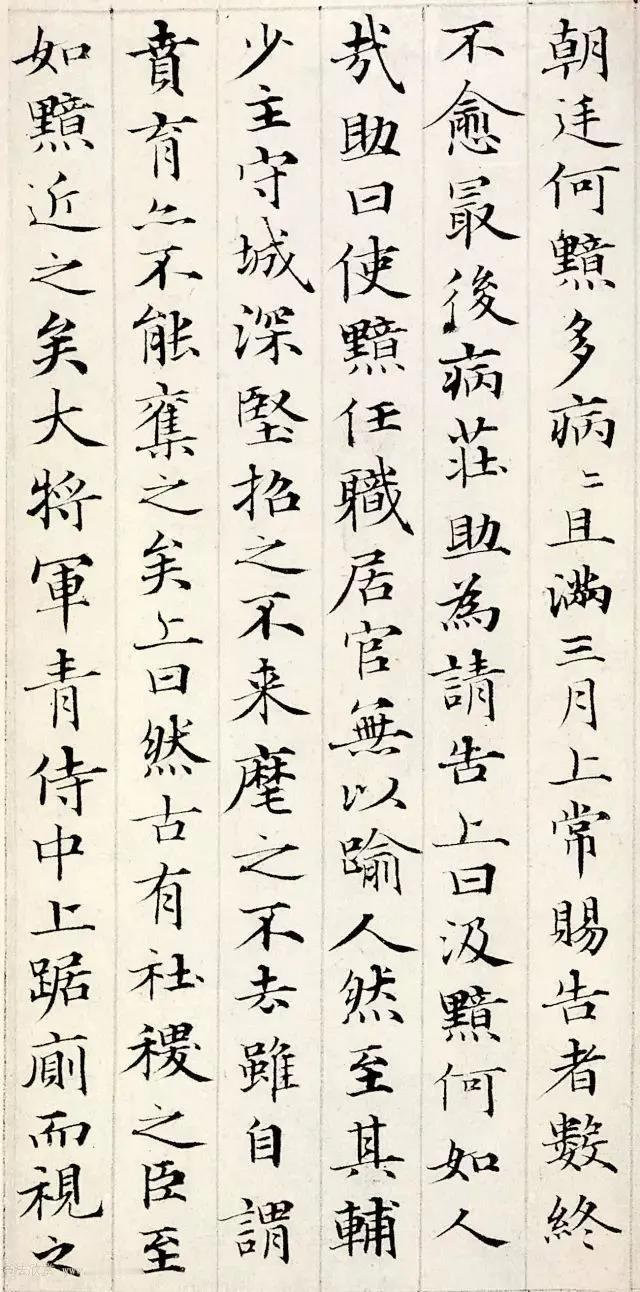 朝廷何黯多病二且滿三月上常賜告者數終
不愈最後病莊助為請告上曰汲黯何如人
㢤助曰使黯任職居官無以踰人然至其輔
少主守城深堅招之不来麾之不去雖自謂
賁育亦不能奪之矣上曰然古有社稷之臣至
如黯近之矣大將軍青侍中上踞廁而視之